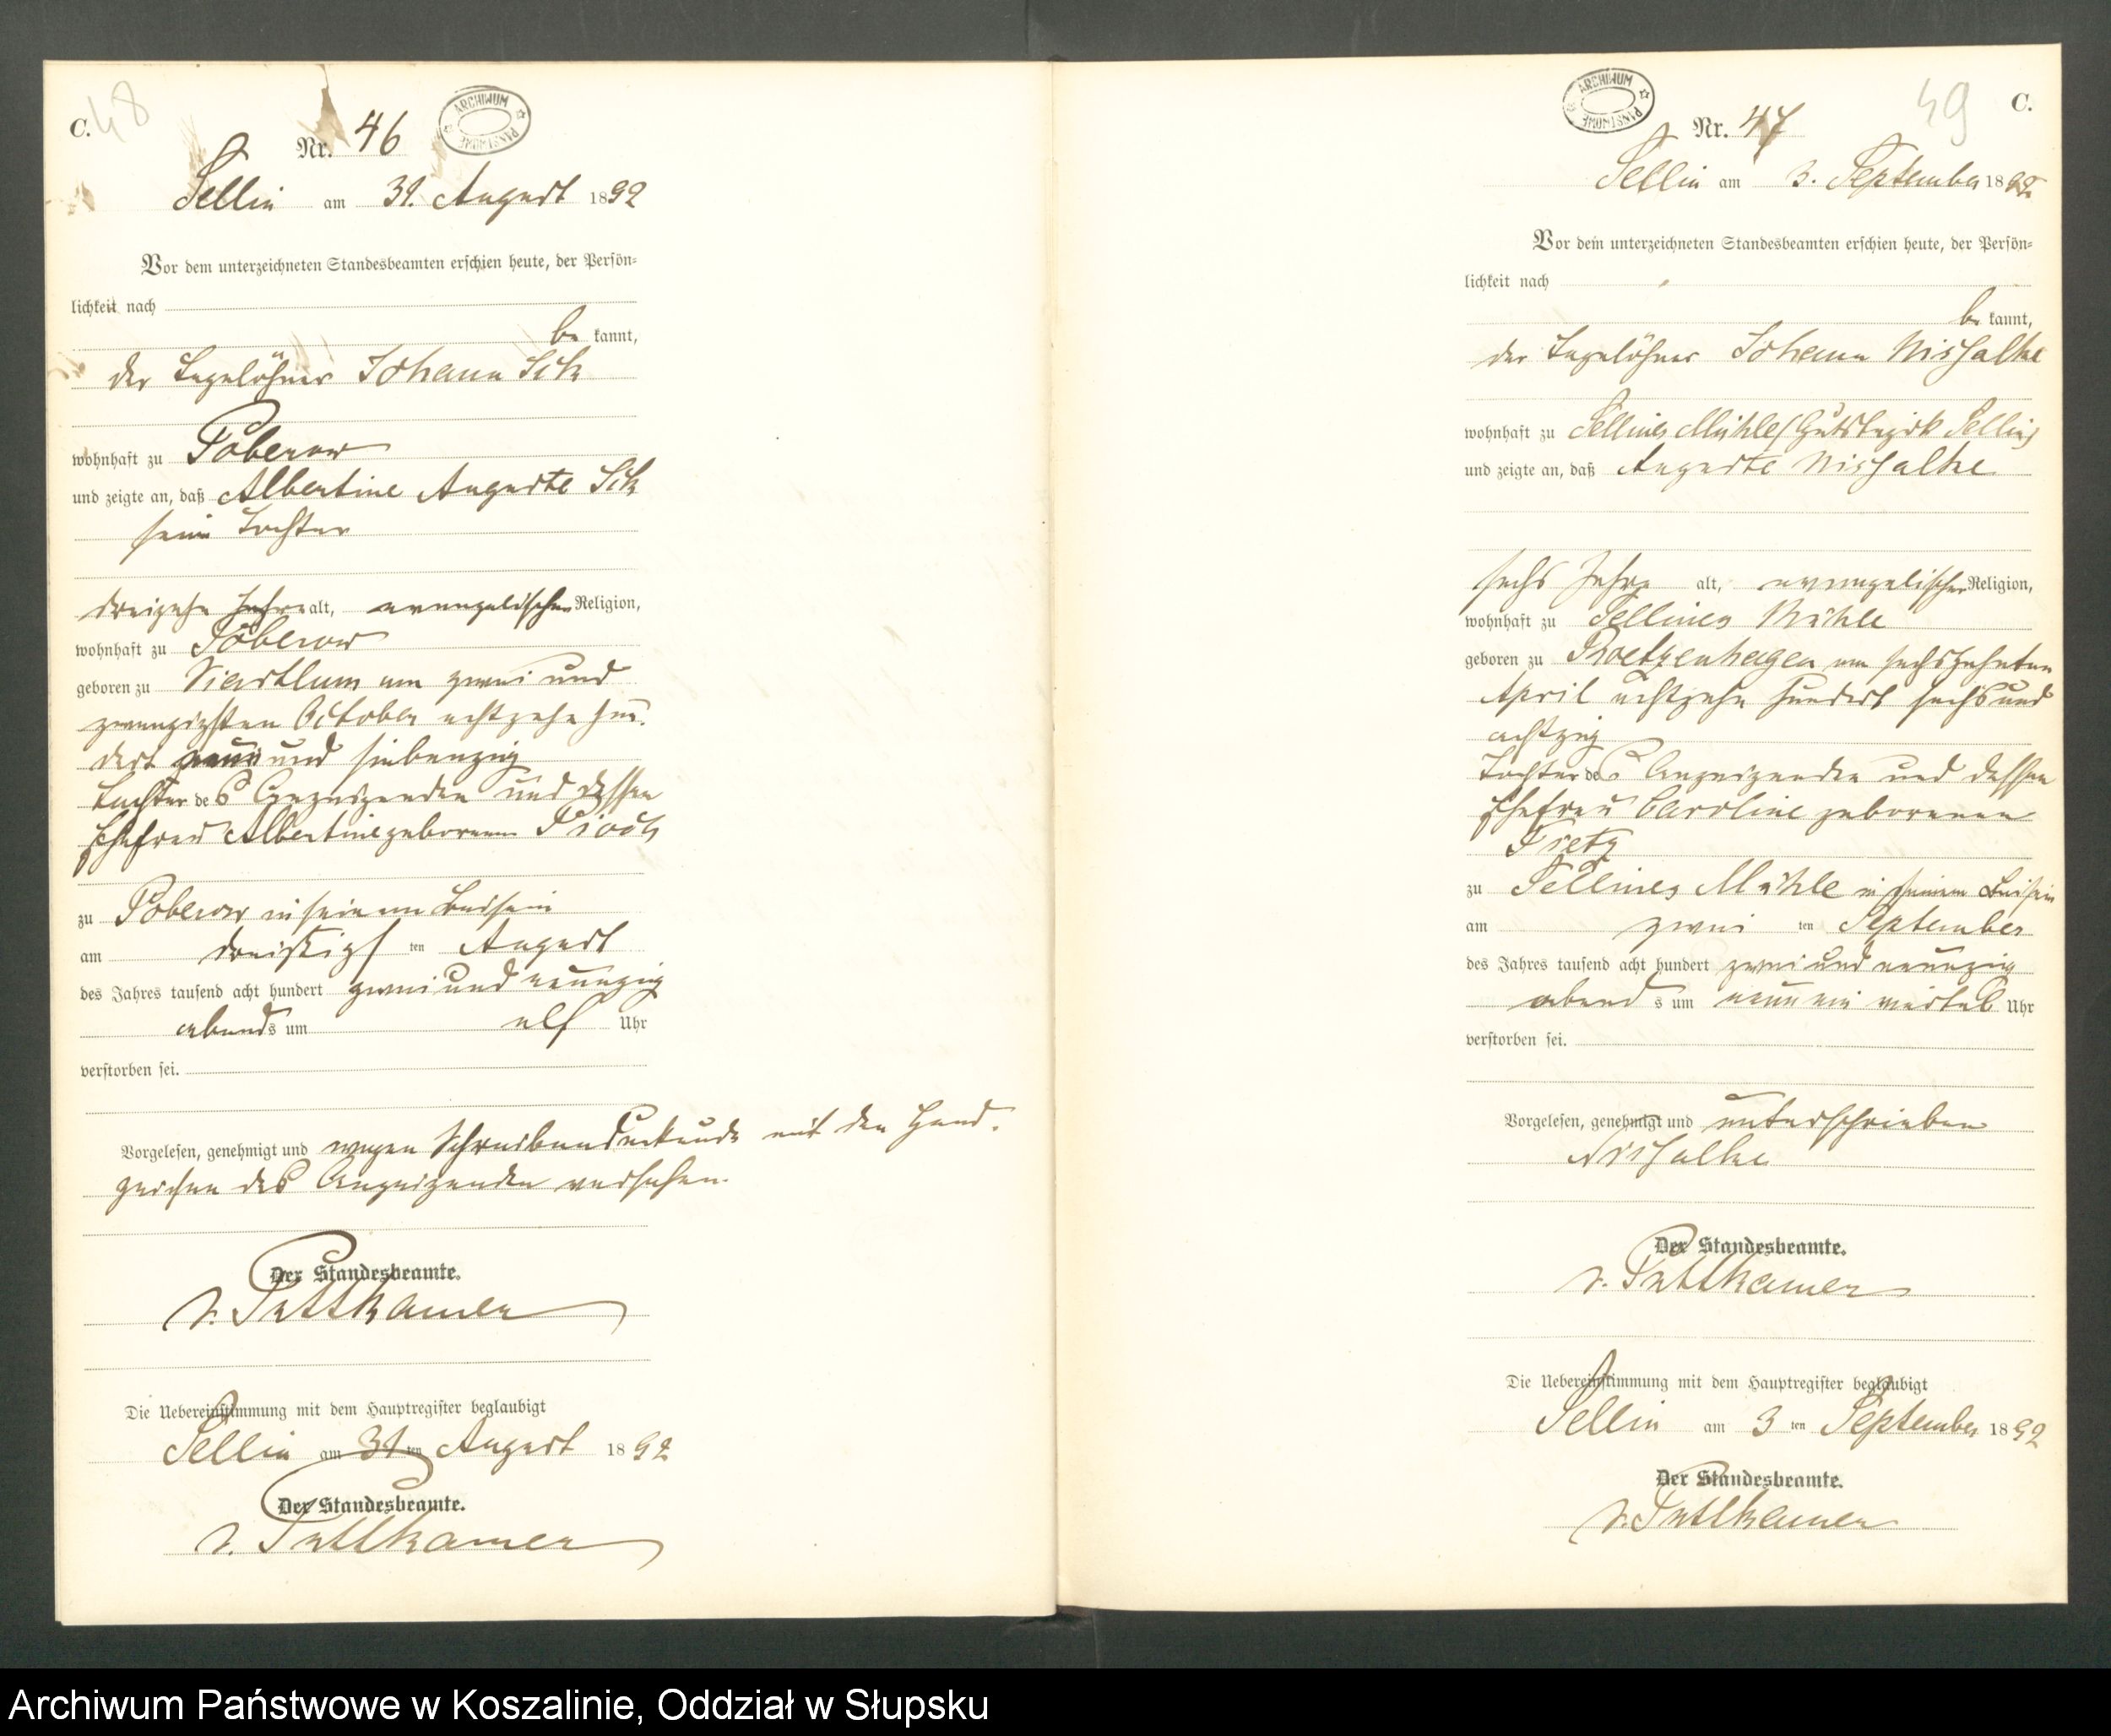 C. 48
Nr. 46
ARCHIWUM PAŃSTWOWE
Sellin am 31. August 1892
Vor dem unterzeichneten Standesbeamten erschien heute, der Persön-
lichkeit nach
be kannt,
der Tagelöhner Johann
wohnhaft zu Poberow
und zeigte an, daß Albertine Auguste
seine Tochter
dreizehn Jahre alt, evangelischer Religion,
wohnhaft zu Poberow
geboren zu Viartlum am zwei und
zwanzigsten October achtzehn hun-
dert neun und siebenzig
Tochter des Anzeigenden und dessen
Ehefrau Albertine geborenen
zu Poberow in seinem Beisein
am dreißigsten August
des Jahres tausend acht hundert zwei und neunzig
abends um elf Uhr
verstorben sei.
Vorgelesen, genehmigt und wegen Schreibensunkunde mit den Hand-
zeichen des Anzeigenden versehen.
Der Standesbeamte.
v. Puttkamer
Die Uebereinstimmung mit dem Hauptregister beglaubigt
Sellin am 31 ten August 1892
Der Standesbeamte.
v. Puttkamer
ARCHIWUM PAŃSTWOWE
49 C.
Nr. 47
Sellin am 3. September 1892
Vor dem unterzeichneten Standesbeamten erschien heute, der Persön-
lichkeit nach
be kannt,
der Tagelöhner Johann Nissalke
wohnhaft zu Selliner Mühle (Gutsbezirk Sellin)
und zeigte an, daß Auguste Nissalke
sechs Jahre alt, evangelischer Religion,
wohnhaft zu Selliner Mühle
geboren zu Roetzenhagen am sechszehnten
April achtzehn hundert sechs und
achtzig
Tochter des Anzeigenden und dessen
Ehefrau Caroline geborenen
Prietz
zu Selliner Mühle in seinem Beisein
am zwei ten September
des Jahres tausend acht hundert zwei und neunzig
abend s um neun ein viertel Uhr
verstorben sei.
Vorgelesen, genehmigt und unterschrieben
Nissalke
Der Standesbeamte.
v. Puttkamer
Die Uebereinstimmung mit dem Hauptregister beglaubigt
Sellin am 3 ten September 1892
Der Standesbeamte.
v. Puttkamer
Archiwum Państwowe w Koszalinie, Oddział w Słupsku